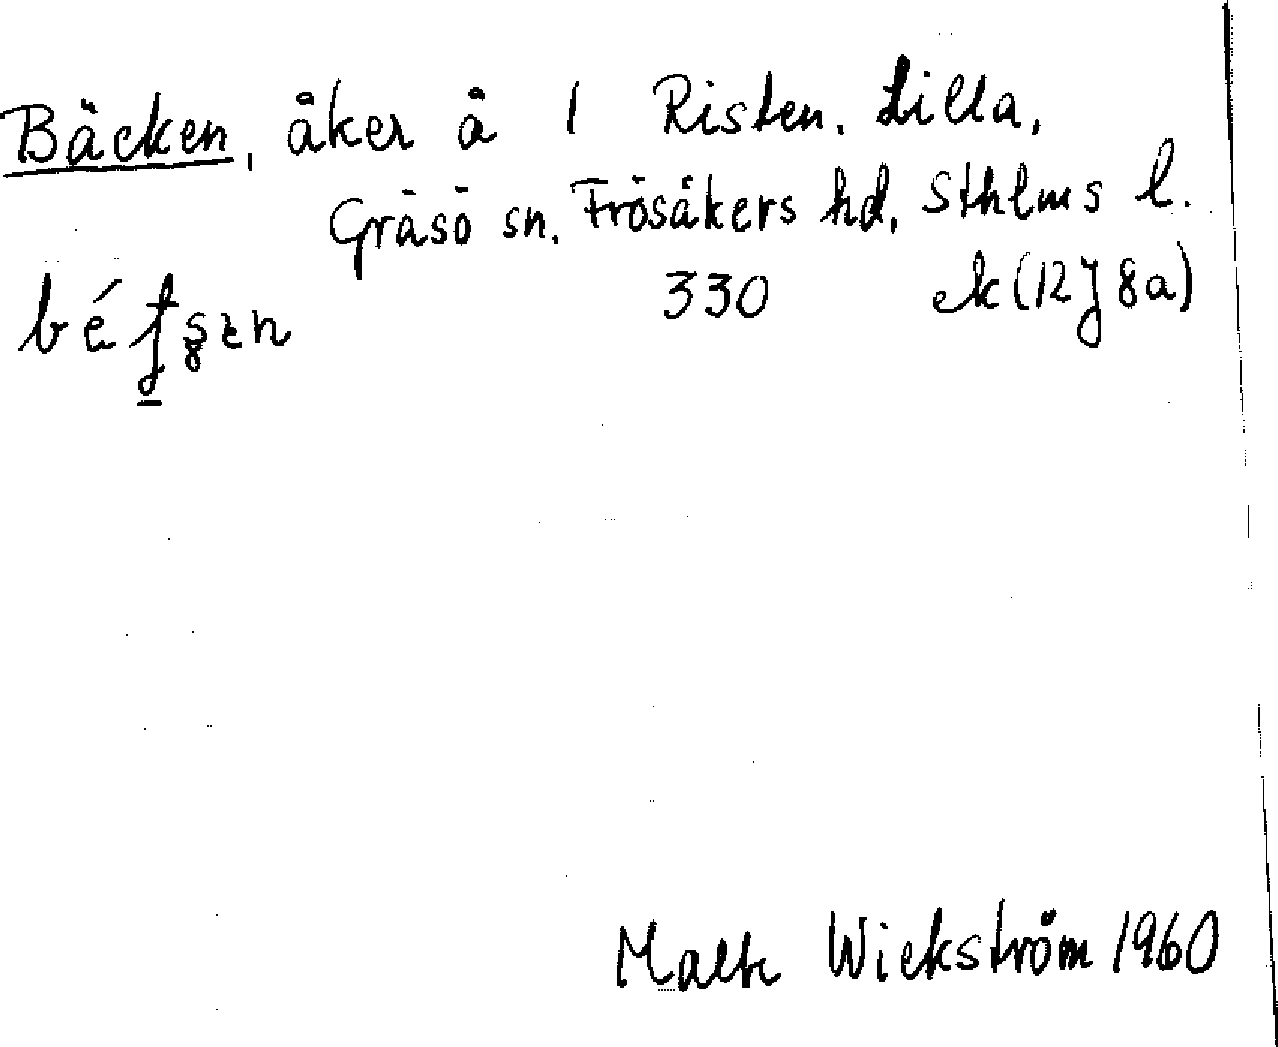 Bäcken, åker å 1 Risten, Lilla,
Gräsö sn, Frösåkers hd, Sthlms l.
330 ek (12J 8a)
Malte Wickström 1960